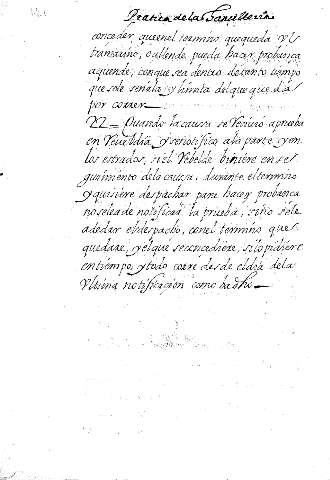 Pratica de la Chancilleria
conceder, que en el termino que queda Vl
tramarino, o allende, pueda hacer probança
aquende, conque sea dentro del tanto tiempo
que se le señala, y hinrla del que que da
por correr.
Quando la causa se recivio aprueba
en Reueldia, y se notifica a la parte, y en
los estrados, si el Rebelde biniere en se
guimiento de la causa, durante el termino
y quisiere despachar para hacer probança
no se le a de notificar la prueba, sino se le
a de dar el despacho, con el termino que
quedare, y el que se concediere, si lo pidiere
en tiempo, y todo corre desde el dia de la
Vltima notificacion como ba dho